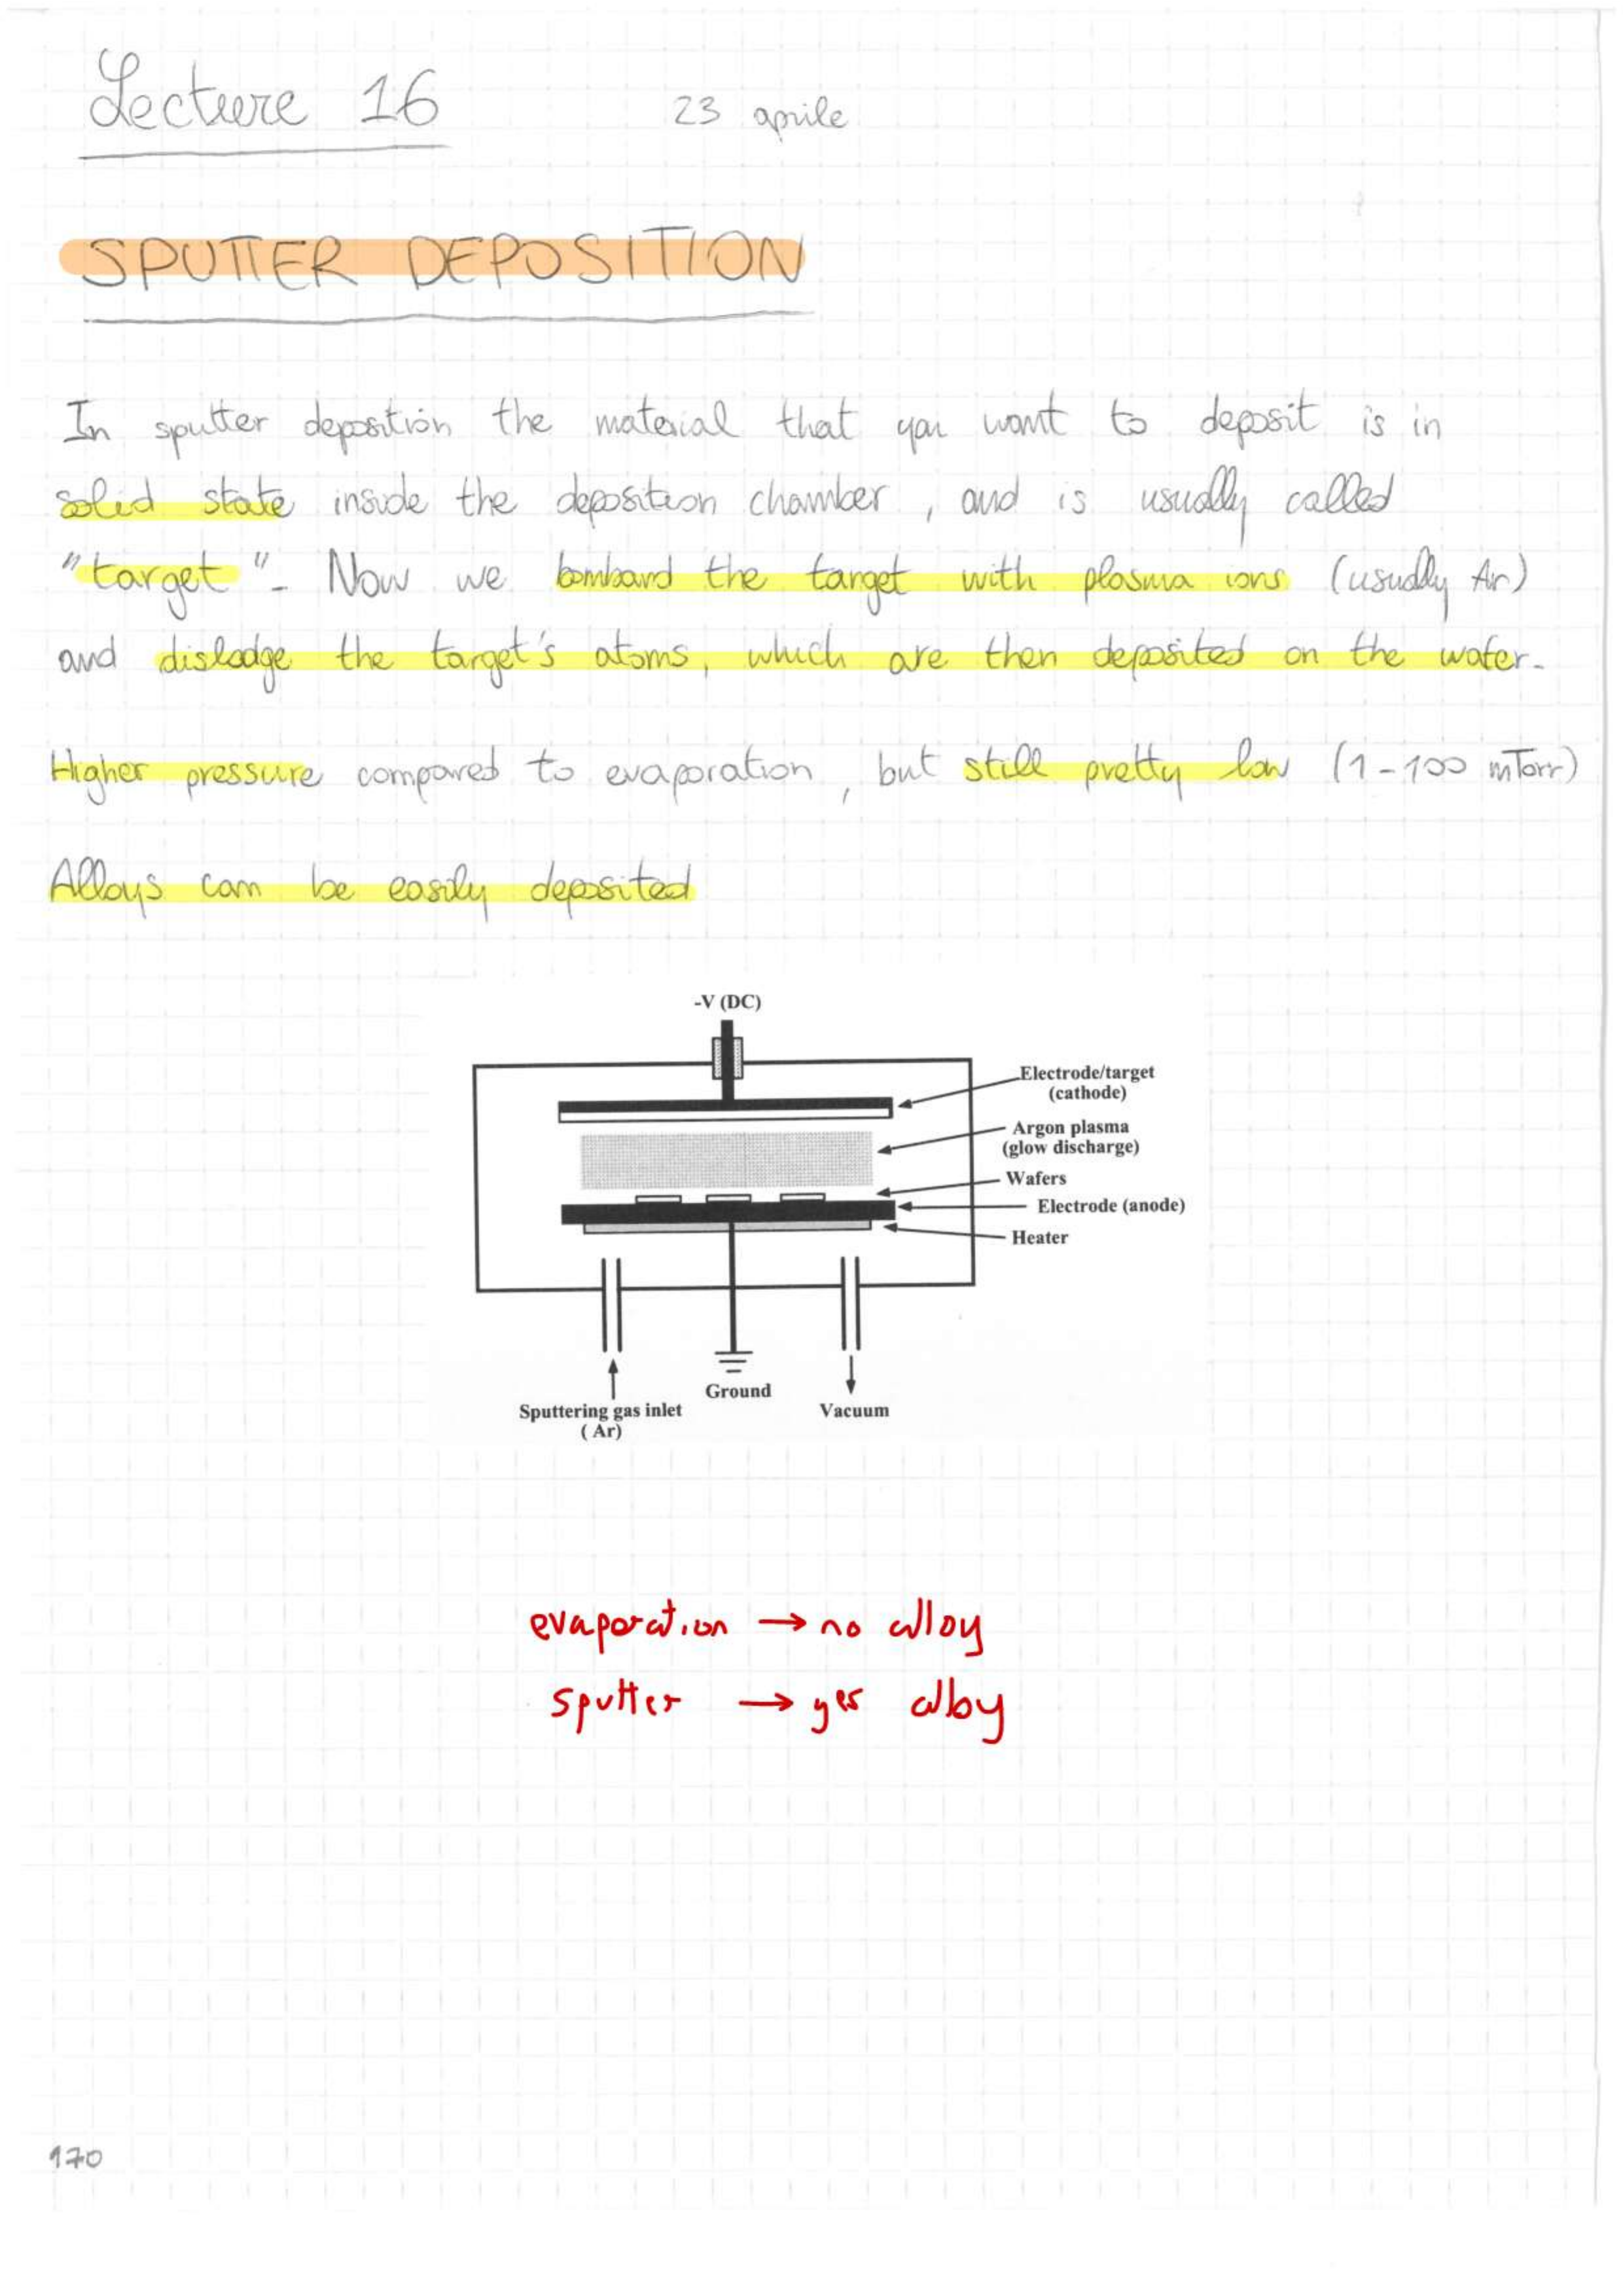 Lecture 16 23 aprile
SPUTTER DEPOSITION
In sputter deposition the material that you want to deposit is in
solid state inside the deposition chamber, and is usually called
"target". Now we bombard the target with plasma ions (usually Ar)
and dislodge the target's atoms, which are then deposited on the wafer.
Higher pressure compared to evaporation, but still pretty low (1-100 mTorr)
Alloys can be easily deposited
-V (DC)
Electrode/target
(cathode)
Argon plasma
(glow discharge)
Wafers
Electrode (anode)
Heater
Ground
Sputtering gas inlet
( Ar)
Vacuum
evaporation → no alloy
sputter → yes alloy
170